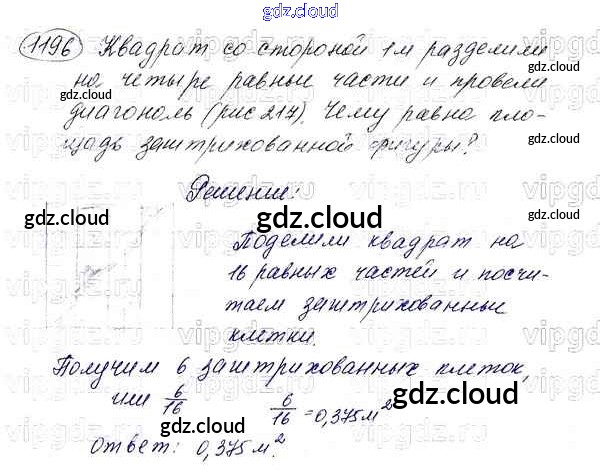 gdz.cloud
1196 Квадрат со стороной 1м разделили
на четыре равные части и провели
диагональ (рис 217). Чему равна пло-
щадь заштрихованной фигуры?
Решение:
gdz.cloud
Поделили квадрат на
16 равных частей и посчи-
таем заштрихованные
клетки.
Получим 6 заштрихованных клеток,
или 6/16 6/16 = 0,375 м²
Ответ: 0,375 м².